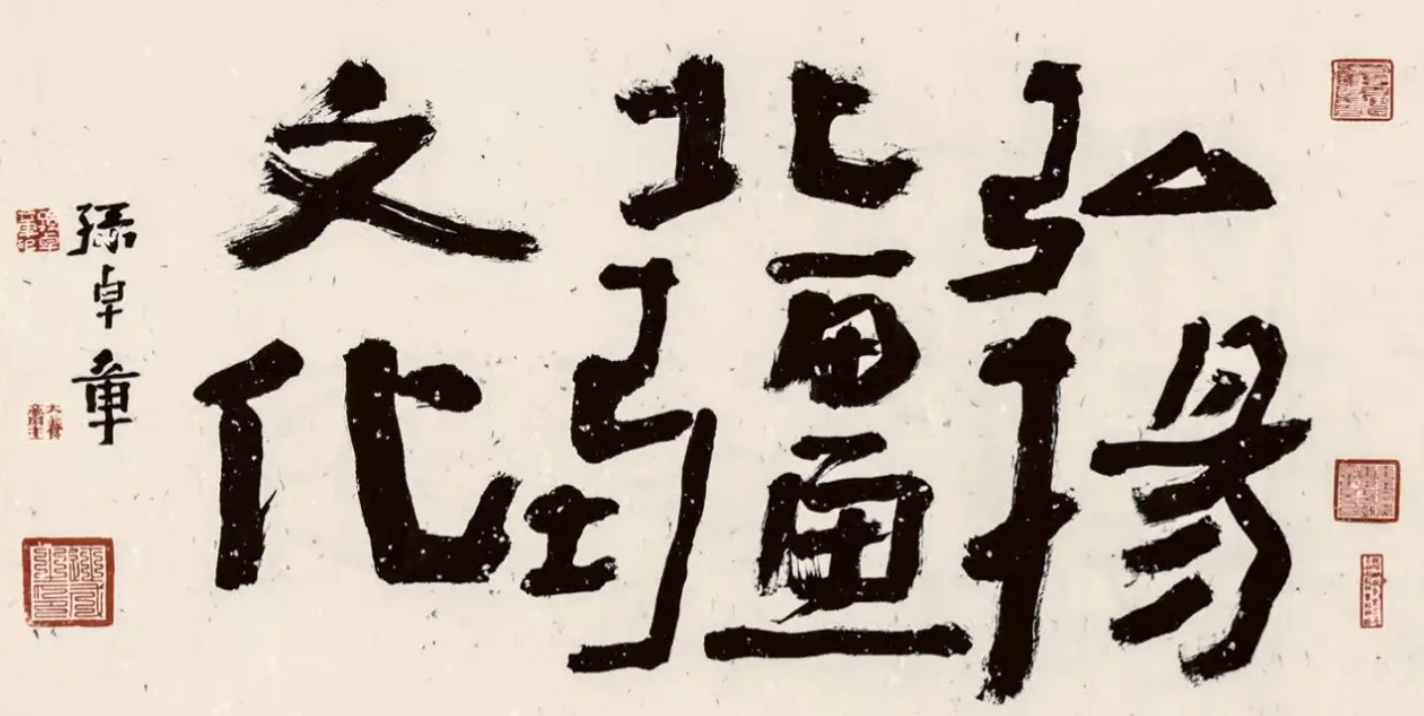 弘揚
北疆
文化
孫卓章